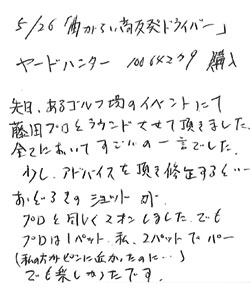 5/26「曲がらない高反発ドライバー」
ヤードハンター 10064239 購入
先日、あるゴルフ場のイベントにて
藤田プロとラウンドさせて頂きました。
全てにおいてすごいの一言でした。
少し、アドバイスを頂き修正すると…
おどろきのショットが、
プロと同じく2オンしました。でも
プロは1パット、私、2パットでパー
(私の方がピンに近かったのに…)
でも楽しかったです。